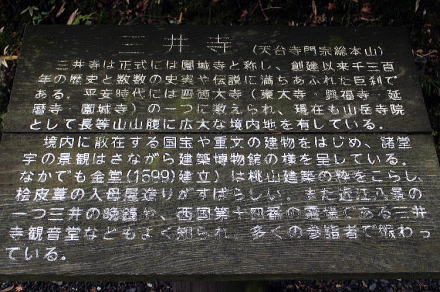 三井寺 (天台寺門宗総本山)
三井寺は正式には園城寺と称し、創建以来千三百
年の歴史と数数の史実や伝説に満ちあふれた巨刹で
ある。平安時代には四箇大寺(東大寺・興福寺・延
暦寺・園城寺)の一つに数えられ、現在も山岳寺院
として長等山山腹に広大な境内地を有している。
境内に散在する国宝や重文の建物をはじめ、諸堂
宇の景観はさながら建築博物館の様を呈している。
なかでも金堂(1599建立)は桃山建築の粋をこらし、
桧皮葺の入母屋造りがすばらしい。また近江八景の
一つ三井の晩鐘や、西国第十四番の霊場である三井
寺観音堂などもよく知られ、多くの参詣者で賑わっ
ている。